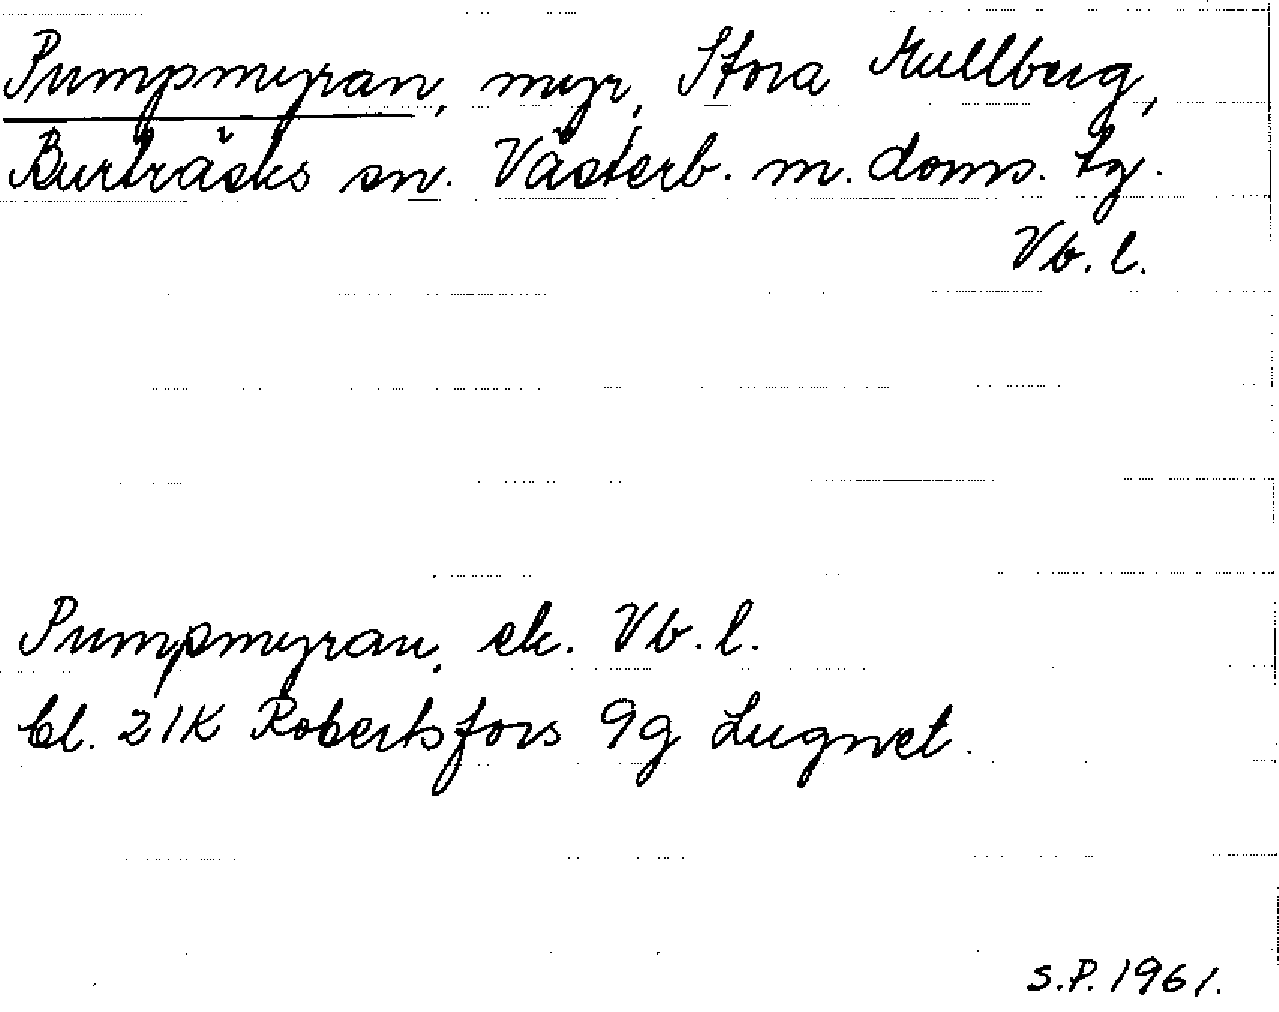 Pumpmyran, myr, Stora Kullberg,
Burträsks sn. Västerb. m. doms. tg.
Vb. l.
Pumpmyran, ek. Vb. l.
bl. 21K Robertsfors 9g Lugnet.
S.P. 1961.